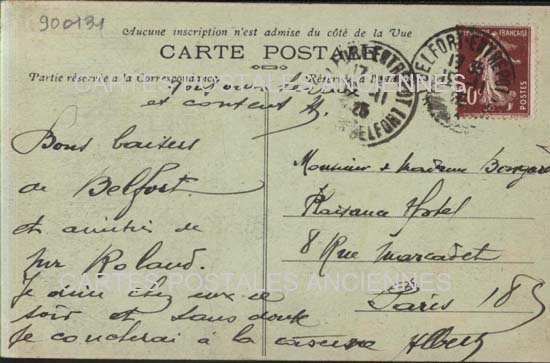 900131
Aucune inscription n'est admise du côté de la Vue
CARTE POSTALE
Partie réservée à la Correspondance
Réservée à l'
et content
Bons baisers
de Belfort.
et amitiés de
Mr Roland.
Je dine chez eux ce
soir et sans doute
Je coucherai à la caserne Albert
Monsieur & Madame
Hotel
8 Rue Marcadet
Paris 18
BELFORT ENTREPOT
17
-11
25
BELFORT
BELFORT ENTREPOT
FRANÇAISE
POSTES
20c
CARTES POSTALES ANCIENNES
CARTES POSTALES ANCIENNES